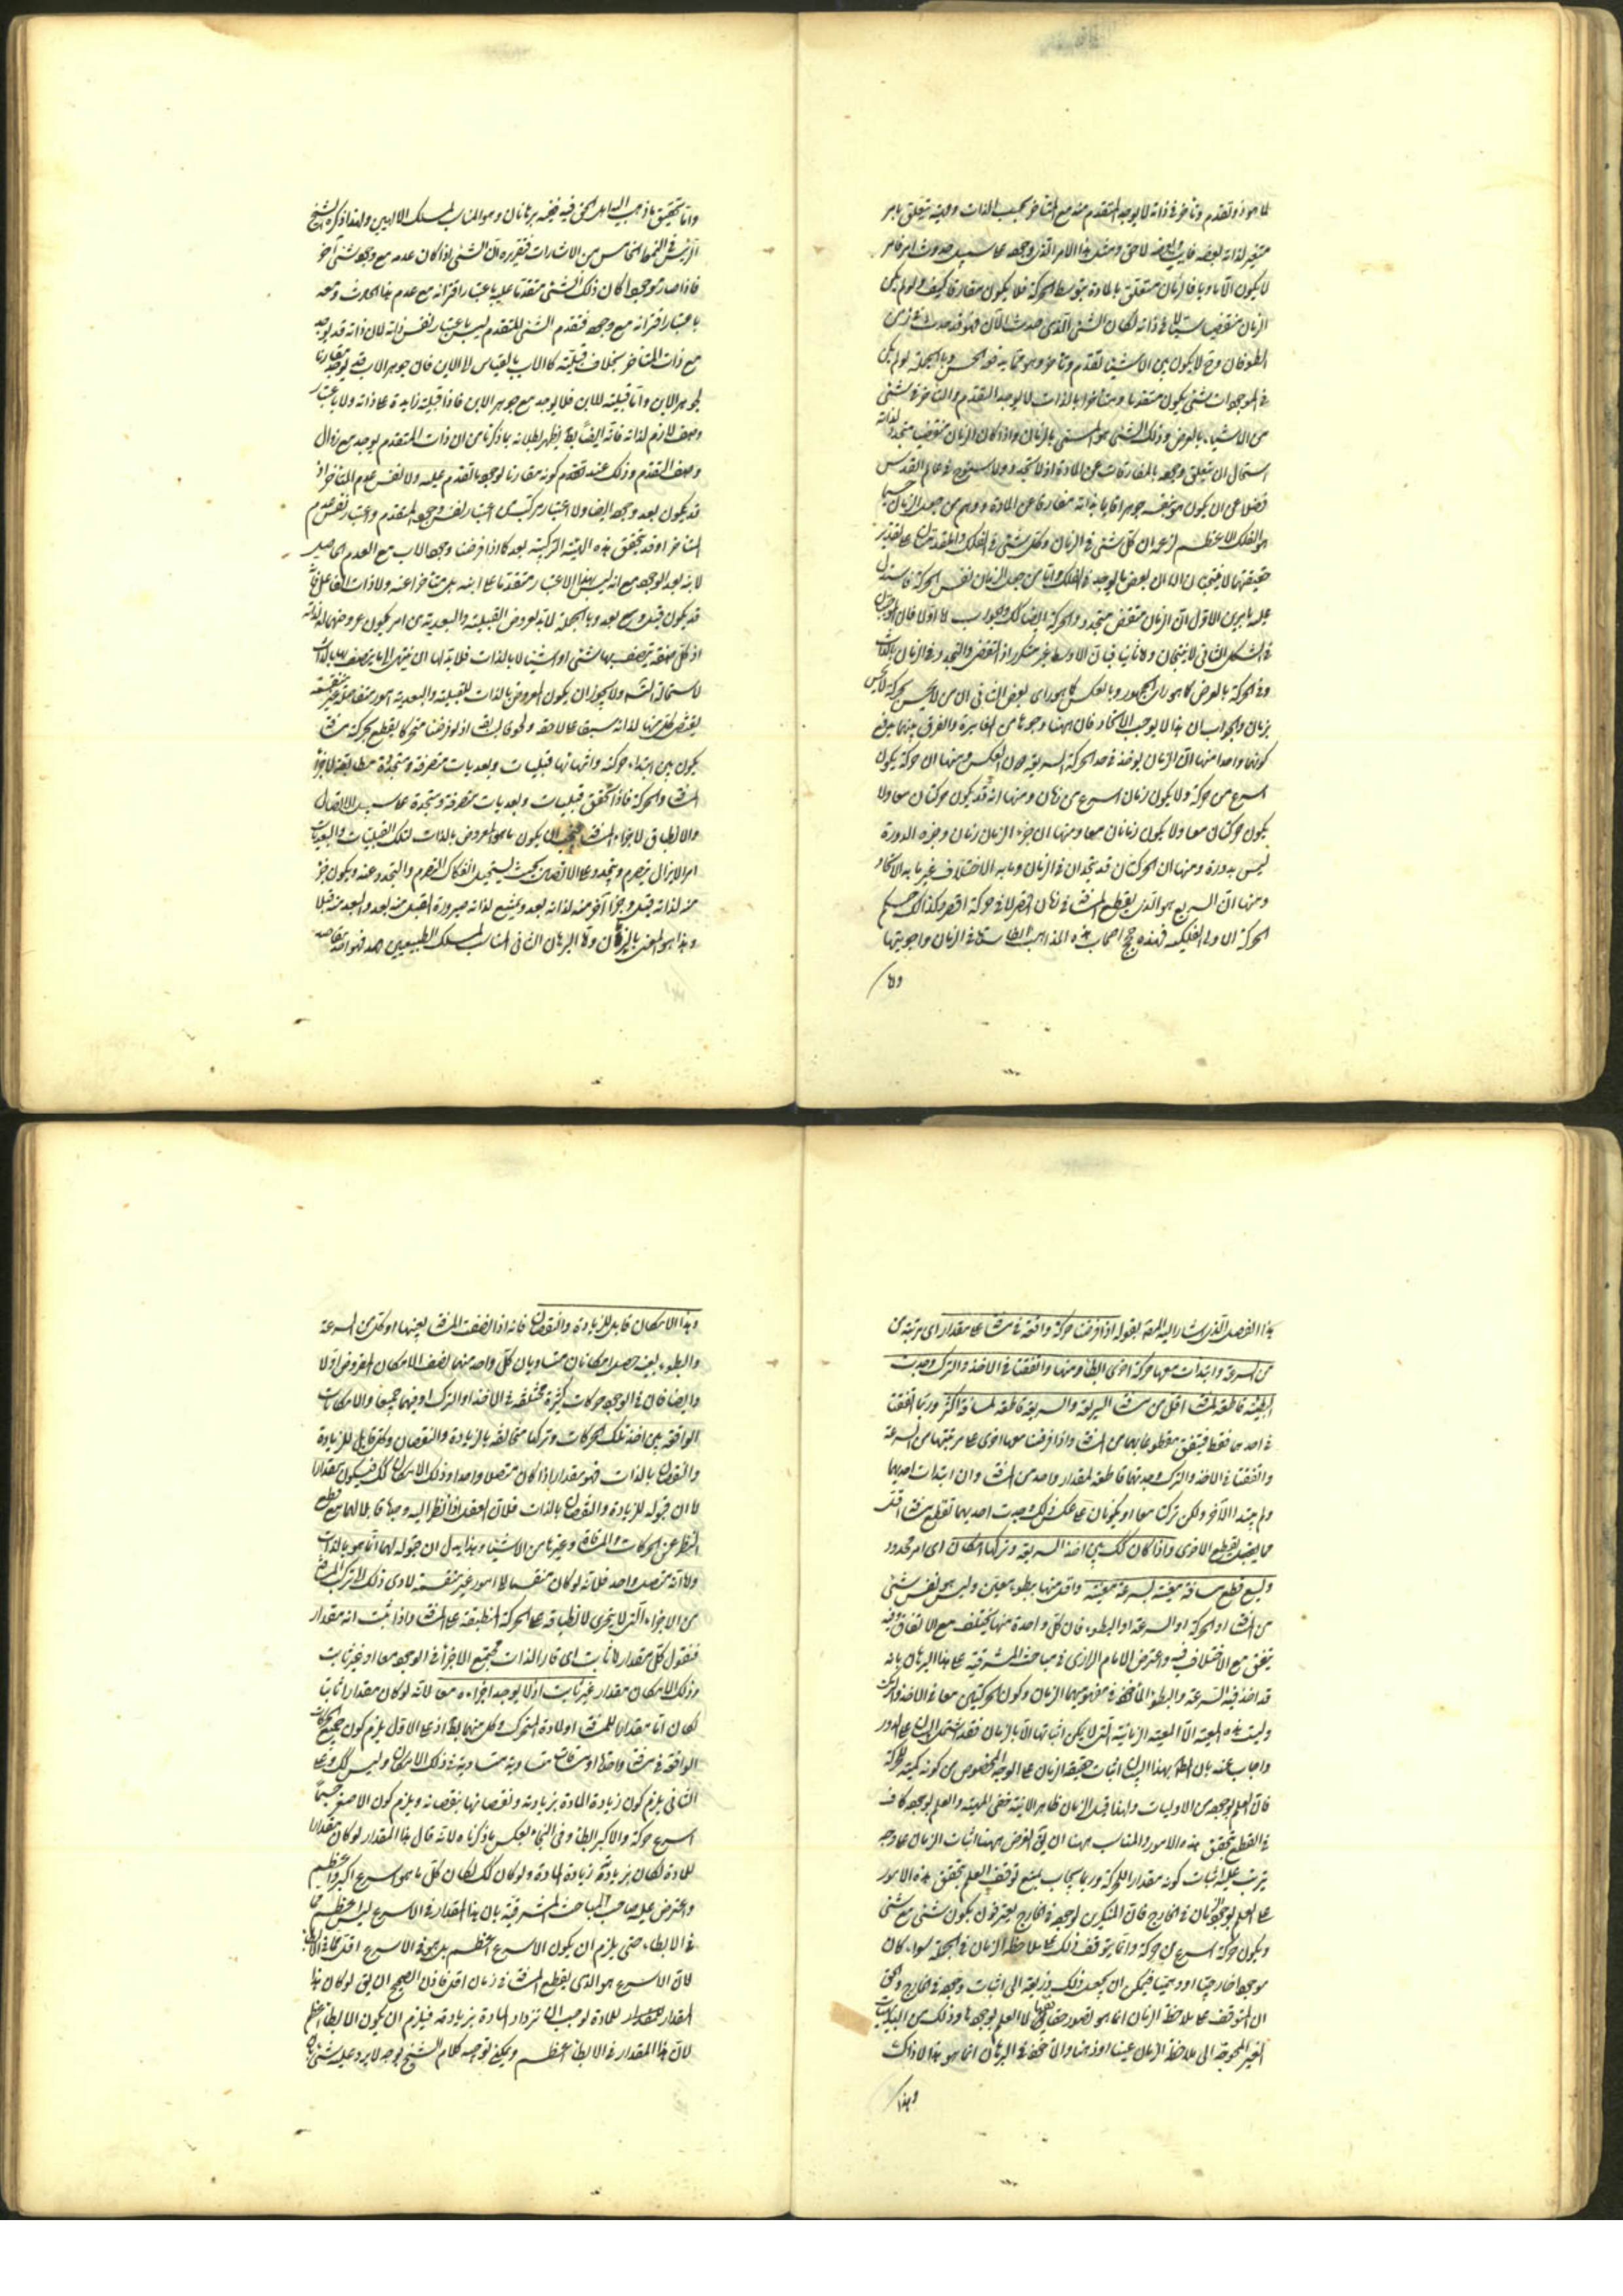 لما هو ذو تقدم وتأخر في ذاته لا يوجد المتقدم منه مع المتأخر بحسب الذات وفيه يتعلق بامر
متغير لذاته بعضه فايت وبعضه لاحق ومثل هذا الامر الذي وجوده على سبيل حدوث امر فامر
لا يكون الا ماديا فالزمان متعلق بالمادة بتوسط الحركة فلا يكون مفارقا كيف ولو لم يكن
الزمان منقضيا سيالا في ذاته لكان الشيء الذي حدث الآن فهو قد حدث في زمن
الطوفان و لا يكون بين الاشياء تقدم وتأخر وهو مما يدفعه الحس وبالجملة لو لم يكن
في الموجودات شيء يكون متقدما ومتأخرا بالذات لما يوجد التقدم والتأخر في شيء
من الاشياء بالعرض وذلك الشيء هو المسمى بالزمان واذا كان الزمان منقضيا متجددا لذاته
استحال ان يتعلق وجوده بالمفارقات عن المادة اذ لا تجدد ولا سنوح في عالم القدس
فضلا عن ان يكون هو بنفسه جوهرا قايما بذاته مفارقا عن المادة ومنهم من جعل الزمان جسما
هو الفلك الاعظم لزعمه ان كل شيء في الزمان وكل شيء في الفلك والمقدمتان على تقدير
حقيقتهما لا ينتجان الا ان بعض ما يوجد في الفلك واما من جعل الزمان نفس الحركة فاستدل
عليه بامرين الاول ان الزمان منقض متجدد والحركة ايضا كذلك وجوابه اما اولا فان الموجبتين
في الشكل الثاني لا ينتجان واما ثانيا فبان الاوسط غير متكرر اذ التقضي والتجدد في الزمان بالذات
وفي الحركة بالعرض كما هو راي الجمهور وبالعكس كما هو راي بعض الثاني ان من لا يحس بحركة لا يحس
بزمان والجواب ان هذا لا يوجب الاتحاد فان ههنا وجوها من المغايرة والفرق بينهما يدفع
كونهما واحدا منها ان الزمان يوخذ في حد الحركة السريعة دون العكس ومنها ان حركة يكون
اسرع من حركة ولا يكون زمان اسرع من زمان ومنها انه قد يكون حركتان معا ولا
يكون حركتان معا ولا يكون زمانان معا ومنها ان جزء الزمان زمان وجزء الدورة
ليس بدورة ومنها ان الحركتان قد تتحدان في الزمان وما به الاختلاف غير ما به الاتحاد
ومنها ان السريع هو الذي يقطع المسافة في زمان اقصر لا في حركة اقصر وكذلك حكم
الحركة الاولى الفلكية فهذه حجج اصحاب هذه المذاهب في الزمان واجوبتها
واما
واما تحقيق ما ذهب اليه اهل الحق فيه فيتجه برهانان وهو المناسب لمسلك الالهيين ولقد ذكره الشيخ
الرئيس في النمط الخامس من الاشارات فتقريره ان الشيء اذا كان عدمه مع وجود شيء آخر
فاذا صار موجودا كان ذلك الشيء متقدما عليه باعتبار اقترانه مع عدم هذا الحادث ومعه
باعتبار اقترانه مع وجوده فتقدم الشيء المتقدم ليس باعتبار نفس ذاته لان ذاته قد يوجد
مع ذات المتأخر بخلاف قبليته كالاب بالقياس الى الابن فان جوهر الاب قد يوجد مقارنا
لجوهر الابن واما قبليته للابن فلا يوجد مع جوهر الابن فاذا قبليته زايدة على ذاته ولا باعتبار
وصف لازم لذاته فانه ايضا يظهر بطلانه بما ذكرنا من ان ذات المتقدم يوجد مع زوال
وصف التقدم وذلك عند كونه مقارنا لوجود ما تقدم عليه ولا نفس عدم المتأخر اذ
قد يكون بعد وجوده ايضا ولا اعتبار مركب من اعتبار نفس وجود المتقدم واعتبار نفس عدم
المتأخر اذ قد تحقق هذه الهيئة التركيبية بعد كما اذا فرضنا وجود الاب مع العدم الحاصل
لابنه بعد الوجود مع انه ليس بهذا الاعتبار متقدما على ابنه بل متأخرا عنه ولا ذات الفاعل فانه
قد يكون قبل ومع وبعد وبالجملة لا بد لعروض القبلية والبعدية من امر يكون عروضهما له لذاته
اذ كل صفة يتصف بها شيء او اشياء لا بالذات فلا بد لها ان ينتهي الى ما يتصف بها بالذات
لاستحالة التسلسل ولا يجوز ان يكون المعروض بالذات للقبلية والبعدية امورا منفصلة غير منقسمة
يقتضي كل منها لذاته سبقا على لاحقه ولحوقا لسابقه اذ لو فرضنا متحركا يقطع بحركته مسافة
يكون بين ابتداء حركته وانتهائها قبليات وبعديات متصرمة ومتجددة مطابقة لاجزاء
المسافة والحركة فاذا تحقق قبليات وبعديات متصرمة ومتجددة على سبيل الاتصال
والانطباق لاجزاء المسافة فيجب ان يكون ما هو المعروض بالذات لتلك القبليات والبعديات
امرا لا يزال يتصرم ويتجدد على الاتصال بحيث يستحيل انفكاك التصرم والتجدد عنه ويكون جزء
منه لذاته قبل وجزء آخر منه لذاته بعد ويمتنع لذاته صيرورة القبل منه بعد والبعد منه قبلا
وهذا هو المعنى بالزمان واما البرهان الثاني المناسب لمسلك الطبيعيين فهو
هذا الفصل الذي اشار اليه المصنف بقوله اذا فرضنا حركة واقعة في مسافة على مقدار اي مرتبة من
من السرعة وابتدات معها حركة اخرى ابطأ منها واتفقتا في الاخذ والترك وجدت
البطيئة قاطعة لمسافة اقل من مسافة السريعة والسريعة قاطعة لمسافة اكثر وربما اتفقتا
في احدهما فقط فيتفق مقطوعاهما من المسافة واذا فرضنا معها اخرى على مرتبتها من السرعة
واتفقتا في الاخذ والترك وجدتهما قاطعة لمقدار واحد من المسافة وان ابتدات احديهما
ولم يبتد الآخر ولكن ترك معا او يكونان على عكس ذلك وجدت احديهما تقطع مسافة اقل
مما يقطع الاخرى واذا كان كذلك بين اخذ السريعة وتركها امكان اي امر محدود
ويسع قطع مسافة معينة بسرعة معينة واقل منها ببطوء معين وليس هو نفس شيء
من المسافة او الحركة او السرعة او البطوء فان كل واحدة منها يختلف مع الاتفاق فيه
يتفق مع الاختلاف فيه واعترض الامام الرازي في مباحث المشرقية على هذا البرهان بانه
قد اخذ فيه السرعة والبطوء المأخوذ في مفهوميهما الزمان وكون الحركتين معا في الاخذ والترك
وليست هذه المعية الا المعية الزمانية التي لا يمكن اثباتها الا بالزمان فقد اشتمل البيان على الدور
واجاب عنه بان المط بهذا البيان اثبات حقيقة الزمان على الوجه المخصوص من كونه كمية للحركة
فان العلم بوجوده من الاوليات ولهذا قيل الزمان ظاهر الانية خفي المهية والعلم بوجوده كاف
في القطع بتحقق هذه الامور والمناسب ههنا ان الغرض ههنا اثبات الزمان على وجه
يترتب عليه اثبات كونه مقدارا للحركة وربما يجاب بمنع توقف العلم بتحقق هذه الامور
على العلم بوجود الزمان في الخارج فان المنكرين لوجوده في الخارج يعترفون بكون شيء مع شيء
وبكون حركة اسرع من حركة وانما يتوقف ذلك على ملاحظة الزمان في الجملة سواء كان
موجودا خارجيا او ذهنيا فيمكن ان يجعل ذلك ذريعة الى اثبات وجوده في الخارج والحق
ان المتوقف على ملاحظة الزمان انما هو تصور حقايقها لا العلم بوجودها وذلك من البديهيات
الغير المحوجة الى ملاحظة الزمان عينا او ذهنا والمأخوذ في البرهان انما هو هذا لا ذاك
وهذا
وهذا الامكان قابل للزيادة والنقصان فانه اذا نصفت المسافة بعينها او كل من السرعة
والبطوء بعينه حصل امكانان متساويان كل واحد منهما نصف الامكان المفروض اولا
وايضا فان في الوجود حركات كثيرة مختلفة في الاخذ او الترك او فيهما جميعا والامكانات
الواقعة بين اخذ تلك الحركات وتركها متخالفة بالزيادة والنقصان وكل قابل للزيادة
والنقصان بالذات فهو مقدار اذا كان متصلا واحدا وذلك الامكان كك فيكون مقدارا
اما ان قبوله للزيادة والنقصان بالذات فلان العقل اذا نظر اليه وجده قابلا لهما مع قطع
النظر عن الحركات والمسافة وغيرها من الاشياء وهذا يدل ان قبوله لهما انما هو بالذات
واما انه متصل واحد فلانه لو كان منقسما الى امور غير منقسمة لادى ذلك الى تركب المسافة
من الاجزاء التي لا يتجزى لانطباقه على الحركة المنطبقة على المسافة واذا ثبت انه مقدار
فنقول كل مقدار اما ثابت اي قار الذات مجتمع الاجزاء في الوجود معا او غير ثابت
وذلك الامكان مقدار غير ثابت اذ لا يوجد اجزاءه معا لانه لو كان مقدارا ثابتا
لكان اما مقدارا للمسافة او لمادة المتحرك وكل منهما بط اذ على الاول يلزم كون جميع الحركات
الواقعة في مسافة واحدة او مسافات متساوية متساوية في ذلك الامكان وليس كك وعلى
الثاني يلزم كون زيادة المادة بزيادته ونقصانها بنقصانه ويلزم كون الاصغر جسما
اسرع حركة والاكبر ابطأ وفي النجاة بعكس ما ذكرناه لانه قال هذا المقدار لو كان مقدارا
للمادة لكان بزيادته زيادة المادة ولو كان كك لكان كل ما هو اسرع اكبر واعظم
واعترض عليه صاحب المباحث المشرقية بان هذا المقدار في الاسرع ليس اعظم مما
في الابطاء حتى يلزم ان يكون الاسرع اعظم بل هو في الاسرع اقل مما في الابطاء
لان الاسرع هو الذي يقطع المسافة في زمان اقل فاذن الصحيح ان يق لو كان هذا
المقدار مقدارا للمادة لوجب ان تزداد المادة بزيادته فيلزم ان يكون الابطأ اعظم
لان هذا المقدار في الابطأ اعظم ويمكن توجيه كلام الشيخ بوجه لا يرد عليه شيء